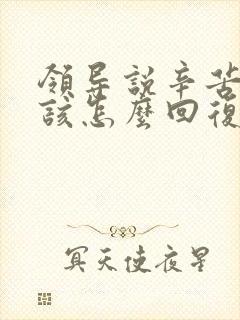 領导説辛苦
該怎麽回復
冥天使夜星